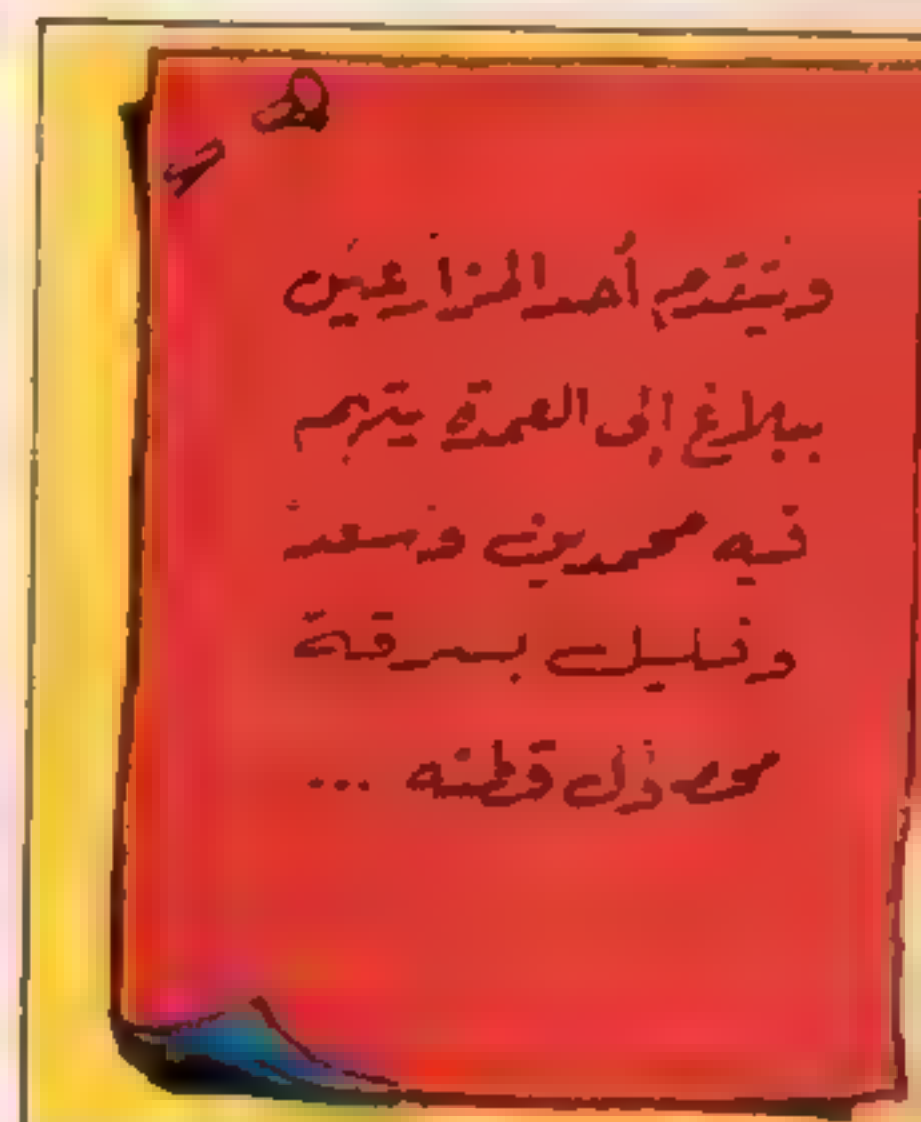 ويتقدم أحد المزارعين
ببلاغ إلى العمدة يتهم
فيه محمدين وسعد
وخليل بسرقة
محصول قطنه ...